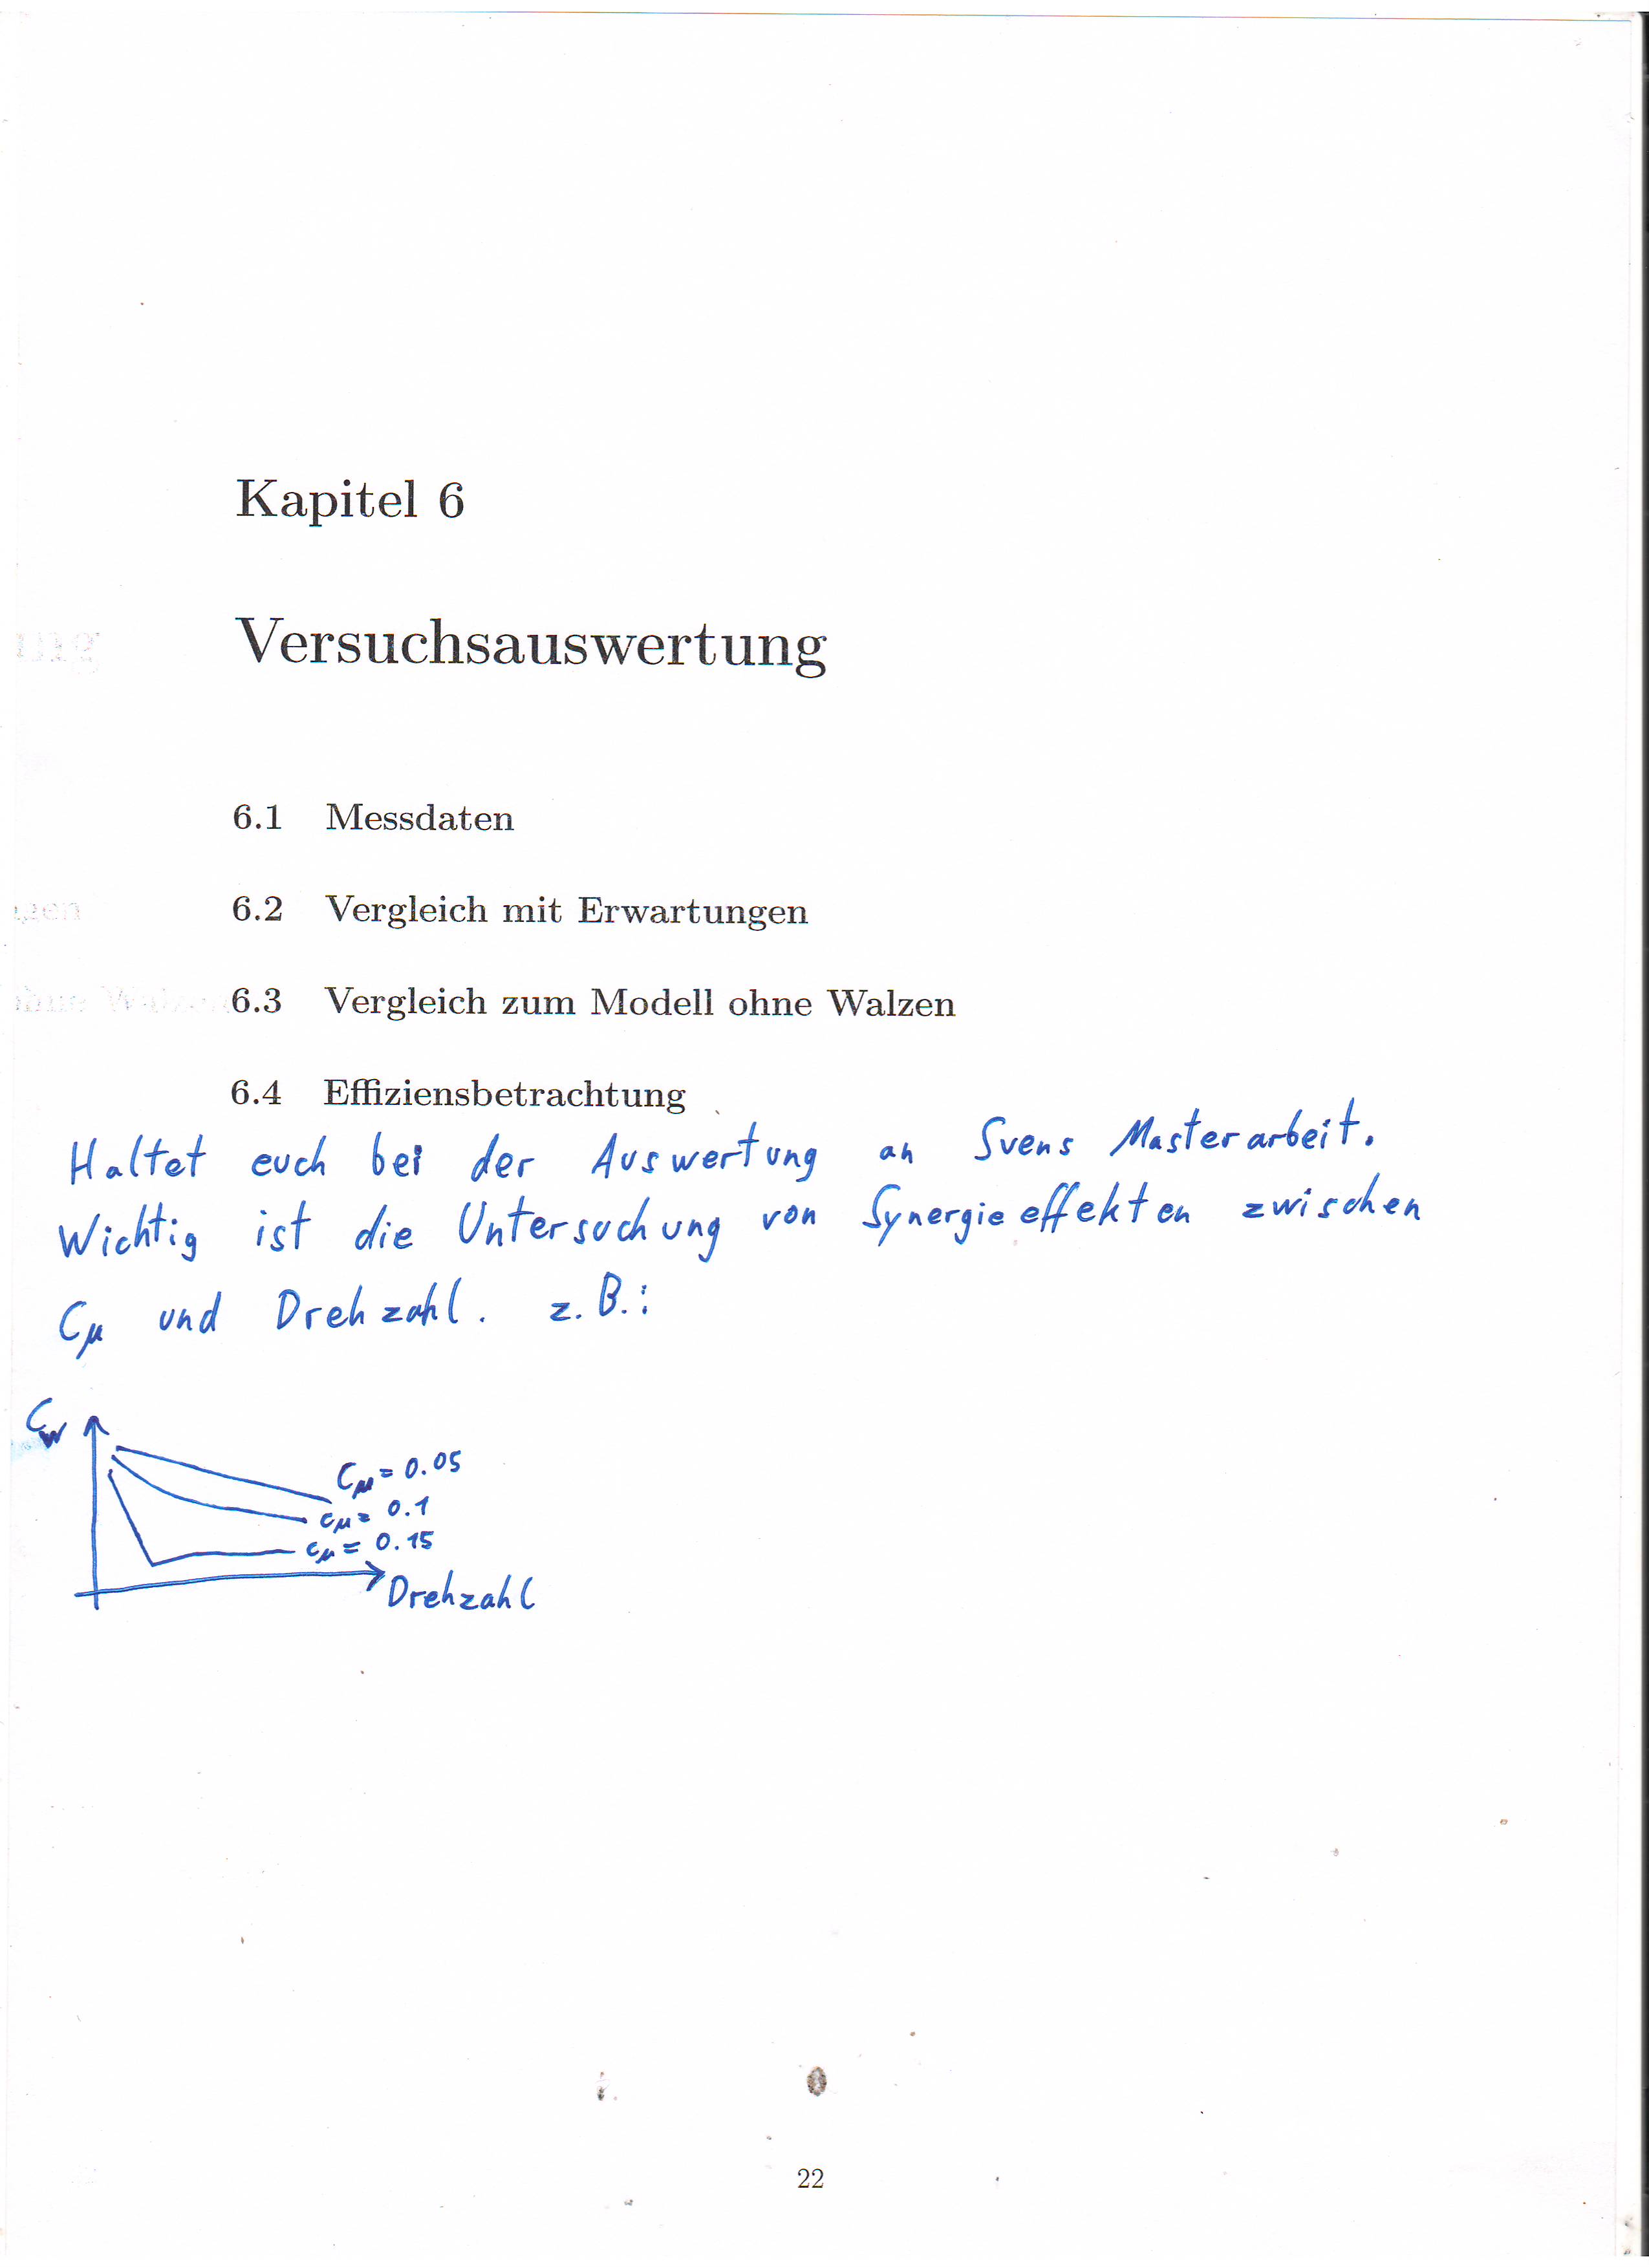 Kapitel 6
Versuchsauswertung
6.1 Messdaten
6.2 Vergleich mit Erwartungen
6.3 Vergleich zum Modell ohne Walzen
6.4 Effiziensbetrachtung
Haltet euch bei der Auswertung an Svens Masterarbeit.
Wichtig ist die Untersuchung von Synergieeffekten zwischen
Cμ und Drehzahl. z.B.:
Cw
Cμ = 0.05
cμ = 0.1
cμ = 0.15
Drehzahl
22